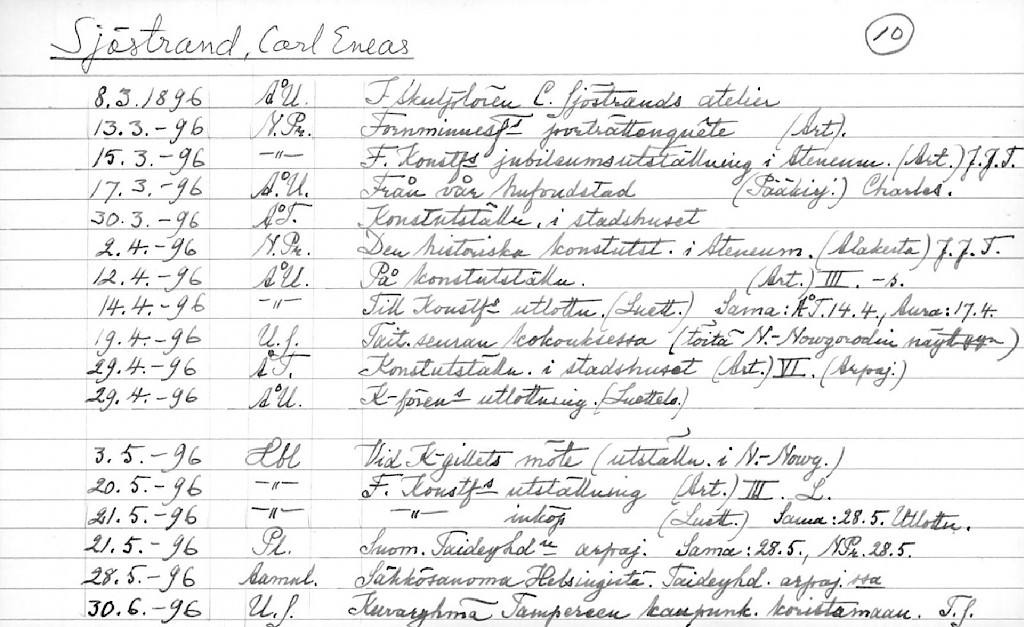 Sjöstrand, Carl Eneas 10
8.3.1896 ÅU. F Skulptören C. Sjöstrands atelier
13.3.-96 N.Pr. Fornminnesfs porträttenquête (Art).
15.3.-96 -"- F. Konstfs jubileumsutställning i Ateneum. (Art.) J.J.T.
17.3.-96 Å.U. Från vår hufvudstad (Pääkirj.) Charles.
30.3.-96 ÅT. Konstutställn. i stadshuset
2.4.-96 N.Pr. Den historiska konstutst. i Ateneum. (Alakerta) J.J.T.
12.4.-96 ÅU. På konstutställn. (Art.) III. -s.
14.4.-96 -"- Till Konstfs utlottn. (Luett.) Sama: ÅT. 14.4., Aura: 17.4.
19.4.-96 U.S. Tait. seuran kokouksessa (töitä N.-Nowgorodin näytt )
29.4.-96 ÅT. Konstutställn. i stadshuset (Art.) VI. (Arpaj.)
29.4.-96 ÅU. K-fören:s utlottning. (Luettelo.)
3.5.-96 Hbl Vid K-gillets möte (utställn. i N.-Nowg.)
20.5.-96 -"- F. Konstfs utställning (Art.) III. L.
21.5.-96 -"- -"- inköp (Luett.) Sama: 28.5. Utlottn.
21.5.-96 Pl. Suom. Taideyhd:n arpaj. Sama: 28.5., NPr. 28.5.
28.5.-96 Aamul. Sähkösanoma Helsingistä. Taideyhd. arpaj.ssa
30.6.-96 U.S. Kuvaryhmä Tampereen kaupunk. koristamaan. T.S.